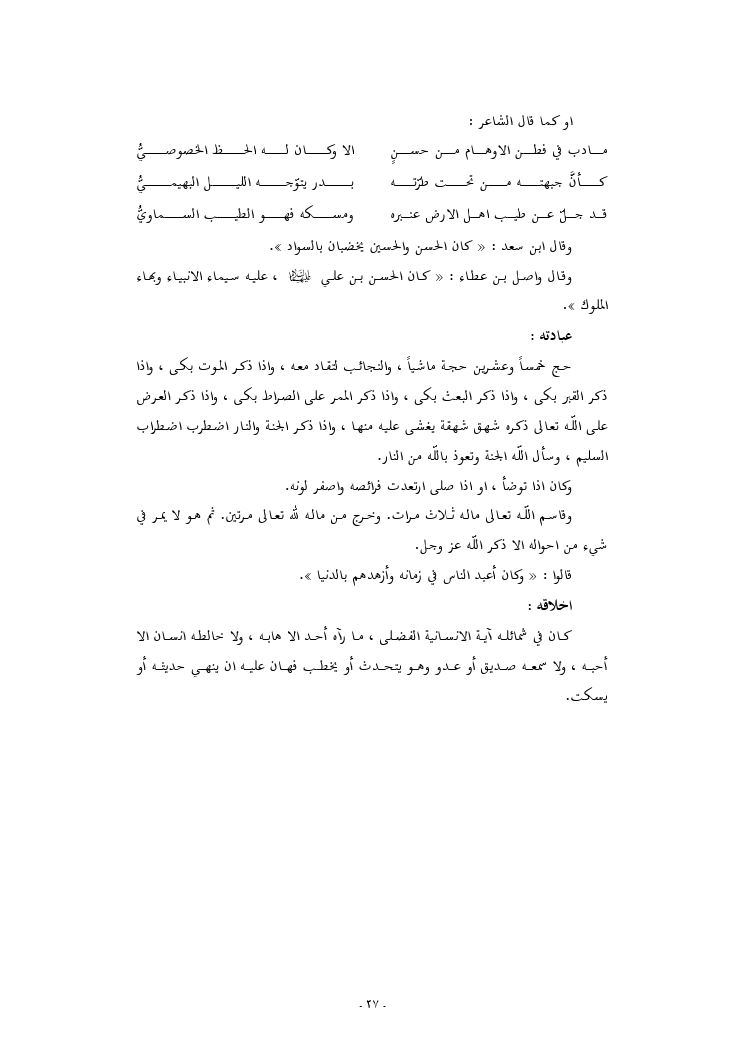 او كما قال الشاعر :
مادب في فطن الاوهام من حسنٍ الا وكان له الحظ الخصوصيُّ
كأنَّ جبهته من تحت طرّته بدر يتوّجه الليل البهيميُّ
قد جلّ عن طيب اهل الارض عنبره ومسكه فهو الطيب السماويُّ
وقال ابن سعد : « كان الحسن والحسين يخضبان بالسواد ».
وقال واصل بن عطاء : « كان الحسن بن علي عليه‌السلام ، عليه سيماء الانبياء وبهاء
الملوك ».
عبادته :
حج خمساً وعشرين حجة ماشياً ، والنجائب لتقاد معه ، واذا ذكر الموت بكى ، واذا
ذكر القبر بكى ، واذا ذكر البعث بكى ، واذا ذكر الممر على الصراط بكى ، واذا ذكر العرض
على اللّه تعالى ذكره شهق شهقة يغشى عليه منها ، واذا ذكر الجنة والنار اضطرب اضطراب
السليم ، وسأل اللّه الجنة وتعوذ باللّه من النار.
وكان اذا توضأ ، او اذا صلى ارتعدت فرائصه واصفر لونه.
وقاسم اللّه تعالى ماله ثلاث مرات. وخرج من ماله للّه تعالى مرتين. ثم هو لا يمر في
شيء من احواله الا ذكر اللّه عز وجل.
قالوا : « وكان أعبد الناس في زمانه وأزهدهم بالدنيا ».
اخلاقه :
كان في شمائله آية الانسانية الفضلى ، ما رآه أحد الا هابه ، ولا خالطه انسان الا
أحبه ، ولا سمعه صديق أو عدو وهو يتحدث أو يخطب فهان عليه ان ينهي حديثه أو
يسكت.
- ٢٧ -